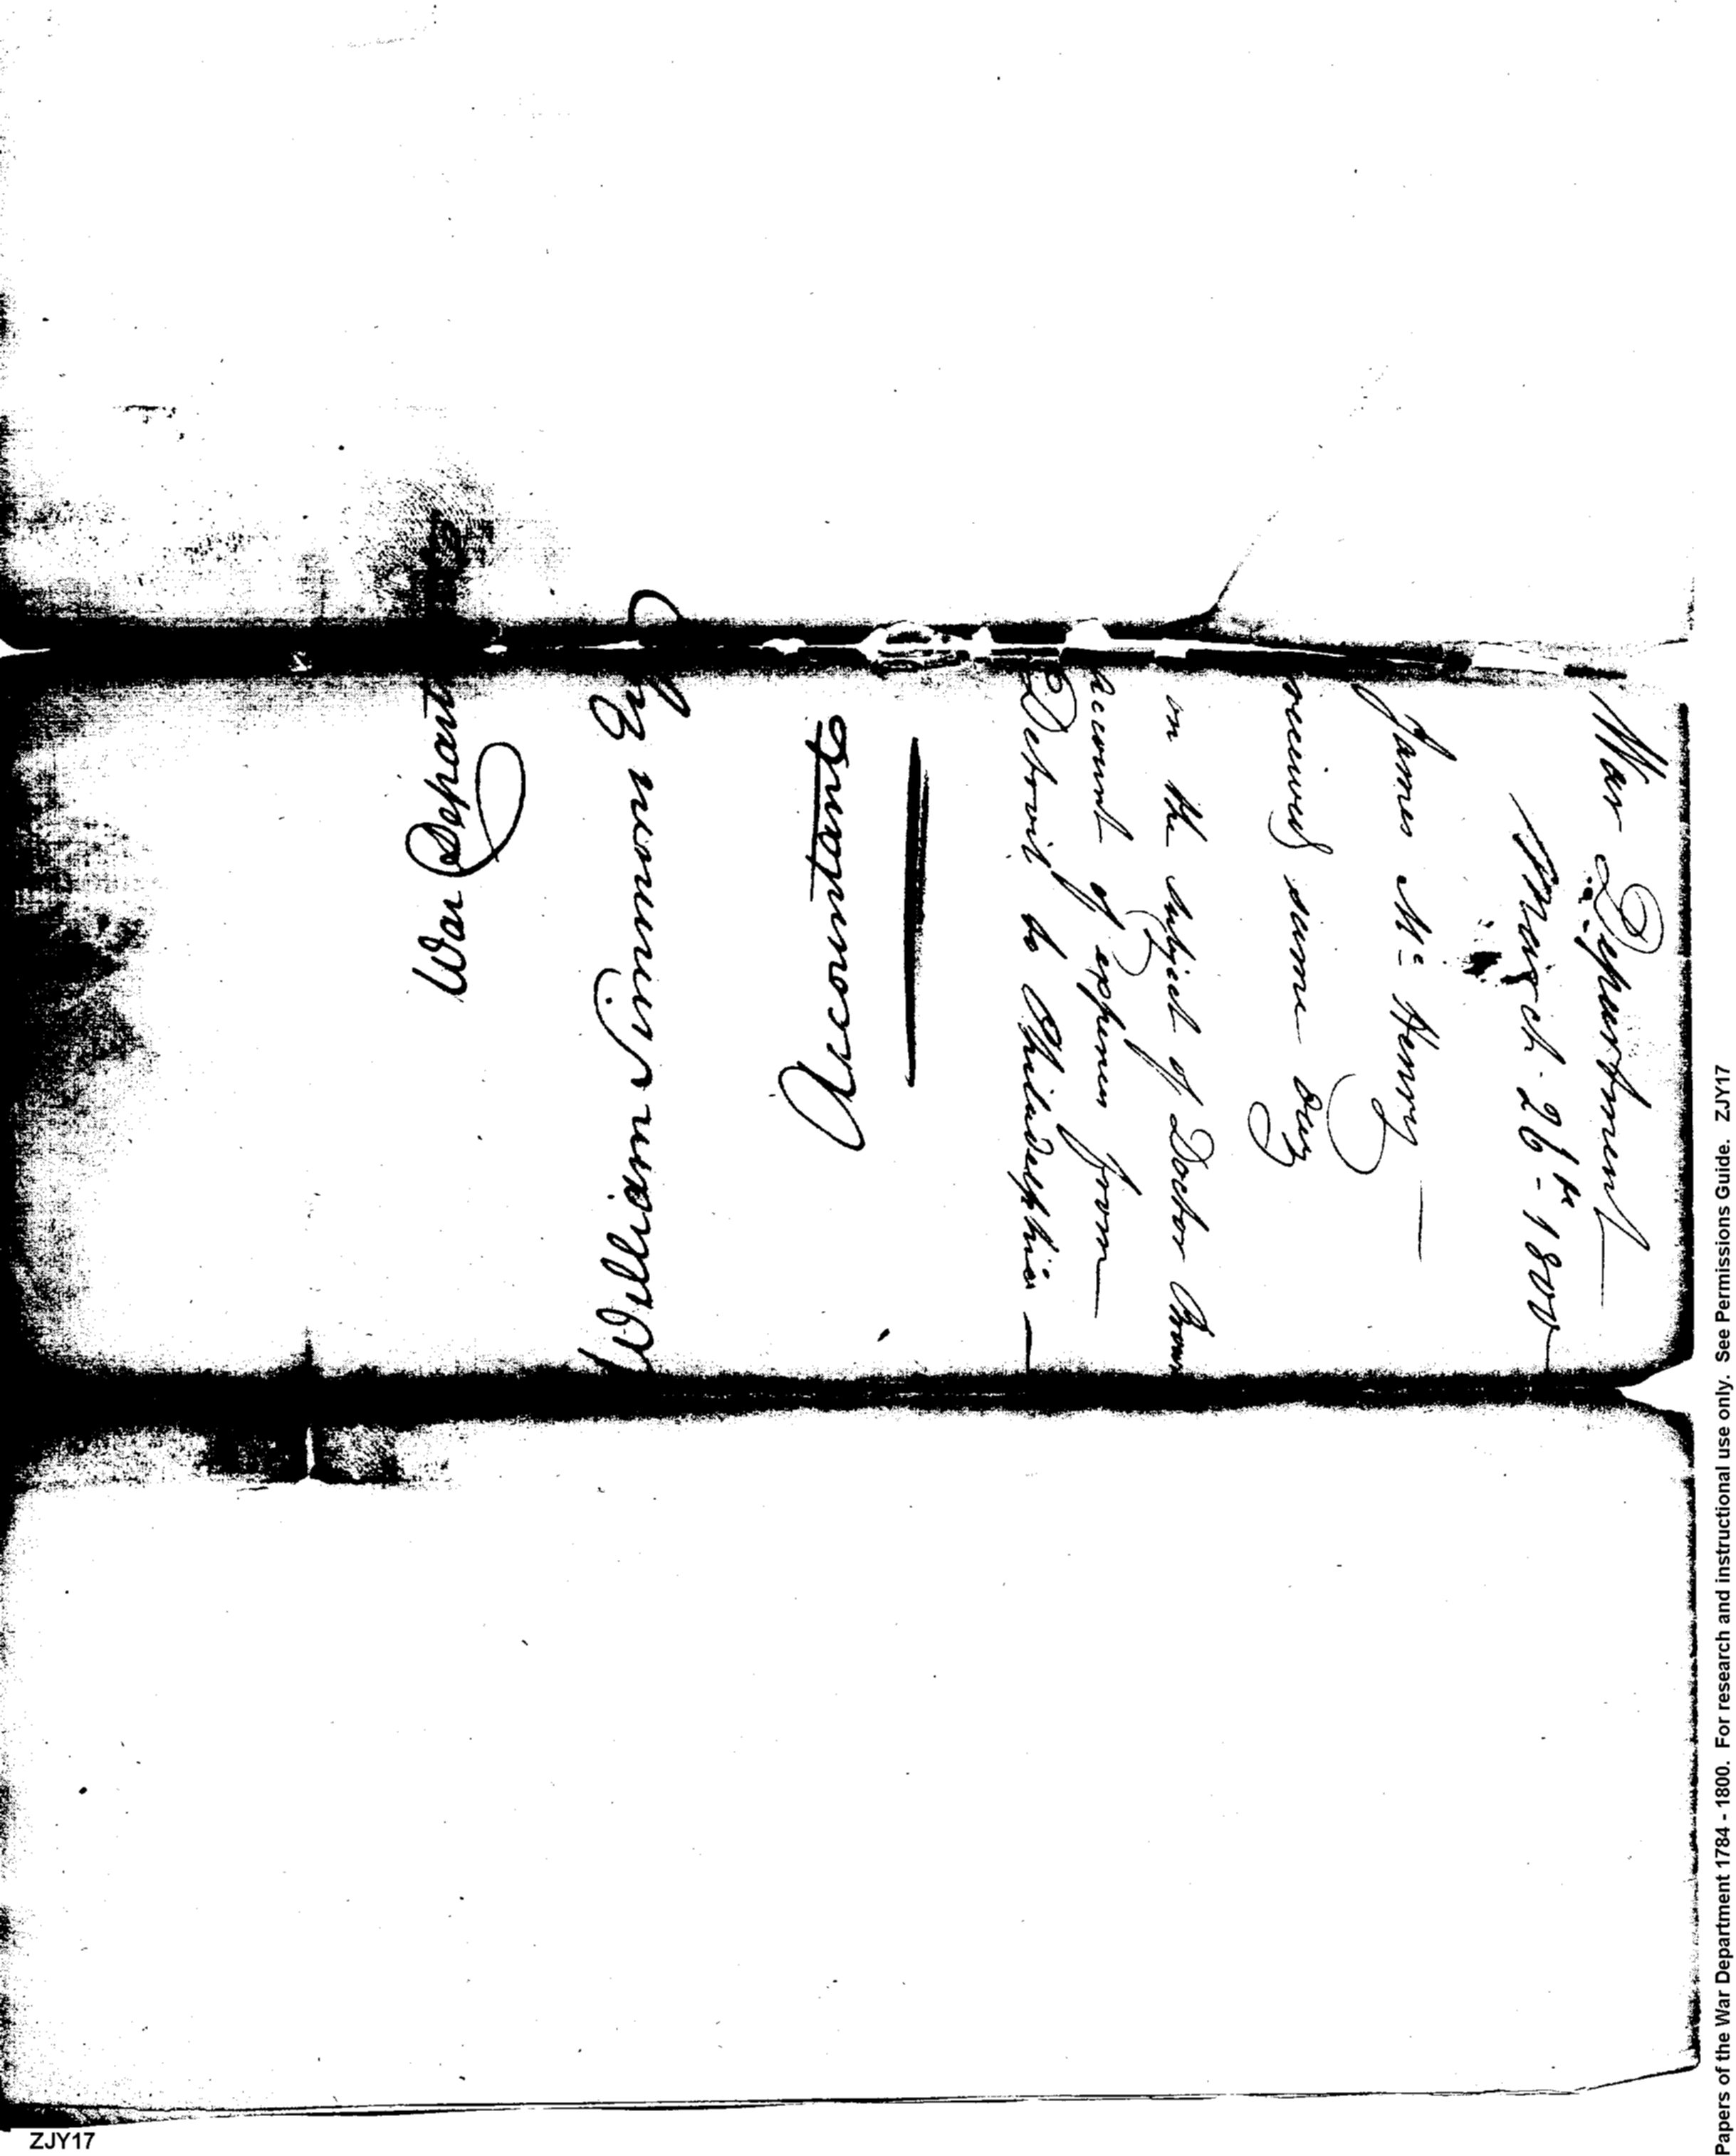 War Department
March 26th - 1800
James Mc Henry
received same day
on the subject of Doctor Brown
account of expenses from
Detroit to Philadelphia
William Simmons Esq
Accountant
War Depart
Papers of the War Department 1784 - 1800. For research and instructional use only. See Permissions Guide. ZJY17
ZJY17